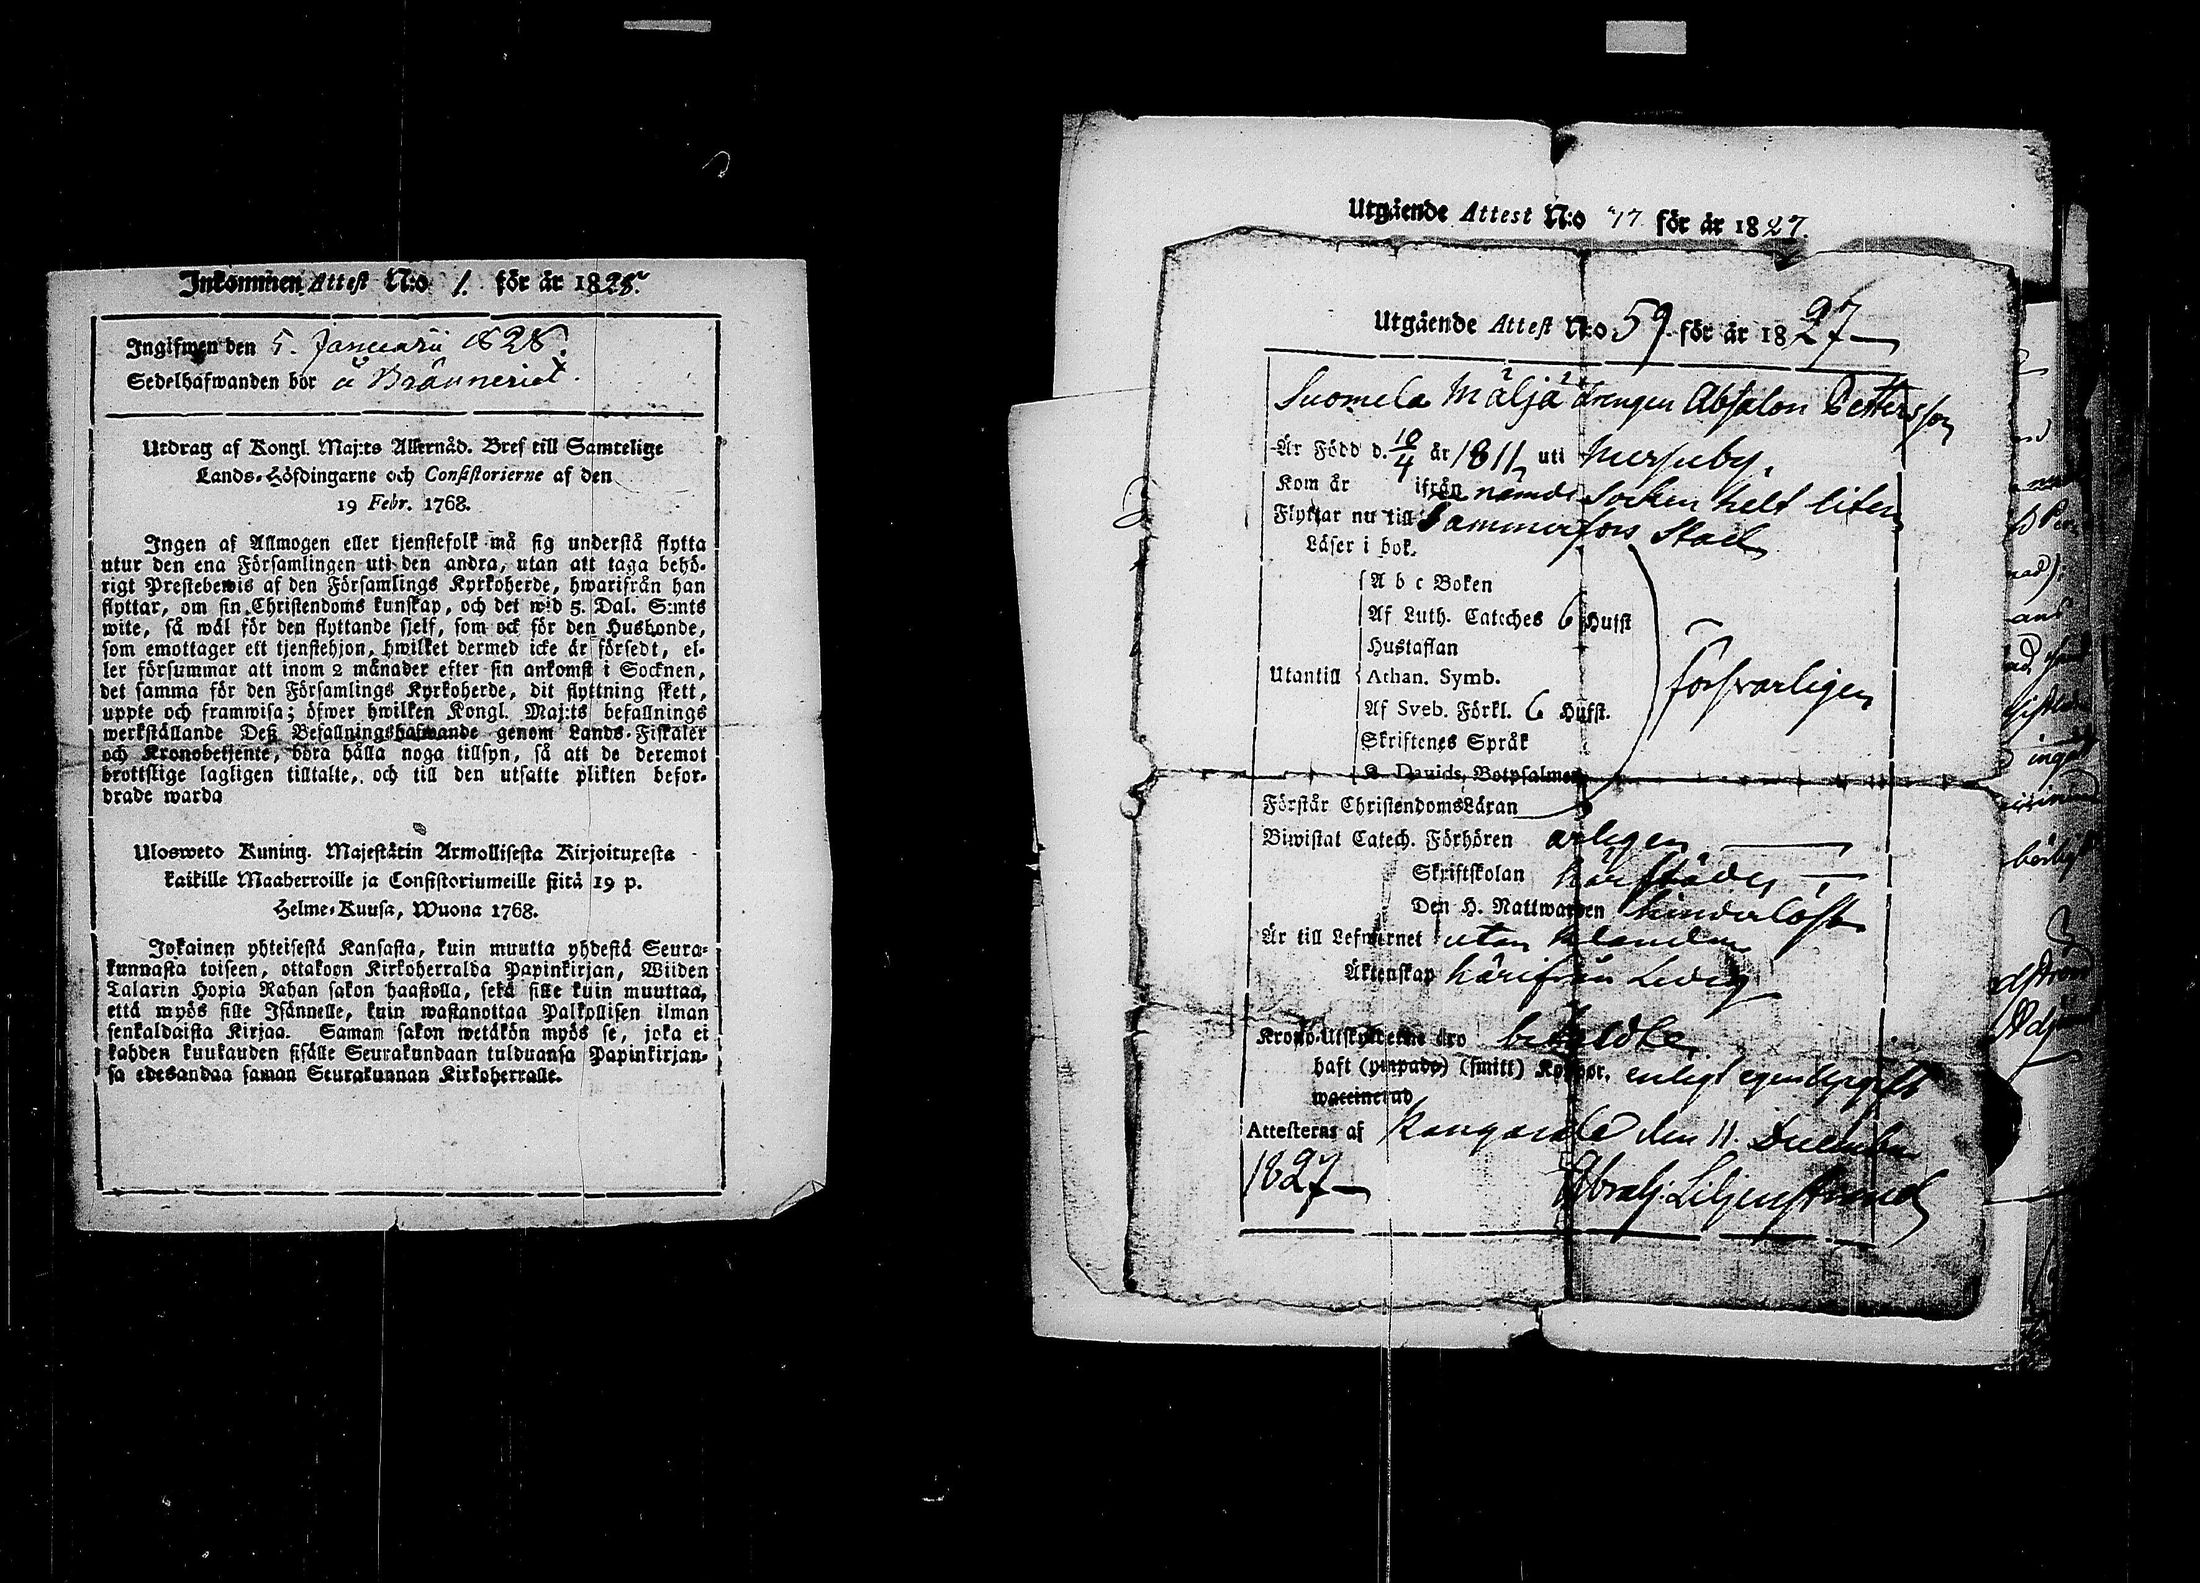 Inkommen Attest N:o 1. för år 1828.
Ingifwen den 5. Januarii 1828.
Sedelhafwanden bor å Bränneriet.
Utdrag af Kongl. Maj:ts Allernåd. Bref till Samtelige
Lands-Höfdingarne och Consistorierne af den
19 Febr. 1768.
Ingen af Allmogen eller tjenstefolk må sig understå flytta
utur den ena Församlingen uti den andra, utan att taga behö-
rigt Prestebewis af den Församlings Kyrkoherde, hwarifrån han
flyttar, om sin Christendoms kunskap, och det wid 5. Dal. S:mts
wite, så wäl för den flyttande sjelf, som ock för den Husbonde,
som emottager ett tjenstehjon, hwilket dermed icke är försedt, el-
ler försummar att inom 2 månader efter sin ankomst i Socknen,
det samma för den Församlings Kyrkoherde, dit flyttning skett,
uppte och framwisa; öfwer hwilken Kongl. Maj:ts befallnings
werkställande Deß Befallningshafwande genom Lands-Fiskaler
och Kronobetjente, böra hålla noga tillsyn, så att de deremot
brottslige lagligen tilltalte, och till den utsatte plikten befor-
drade warda
Ulosweto Kuning. Majestätin Armollisesta Kirjoituxesta
kaikille Maaherroille ja Consistoriumeille siitä 19 p.
Helme-Kuusa, Wuona 1768.
Jokainen yhteisestä Kansasta, kuin muutta yhdestä Seura-
kunnasta toiseen, ottakoon Kirkoherralda Papinkirjan, Wiiden
Talarin Hopia Rahan sakon haastolla, sekä sille kuin muuttaa,
että myös sille Isännelle, kuin wastanottaa Palkollisen ilman
senkaldaista Kirjaa. Saman sakon wetäkön myös se, joka ei
kahden kuukauden sisälle Seurakundaan tulduansa Papinkirjan-
sa edesandaa saman Seurakunnan Kirkoherralle.
Utgående Attest N:o 17 för år 1827.
Utgående Attest N:o 59 för år 1827
Suomela Mäljä drengen Absalon Pettersson
Är Född d. 10/4 år 1811 uti
Kom år ifrån nämde Socken helt liten
Flyttar nu till Tammerfors Stad
Läser i bok.
A b c Boken
Af Luth. Cateches 6 Hufst
Hustaflan
Utantill Athan. Symb.
försvarligen
Af Sveb. Förkl. 6 Hufst.
Skriftenes Språk
K. Davids, Botpsalmer
Förstår ChristendomsLäran
Biwistat Catech. Förhören årligen
Skriftskolan härstädes
Den H. Nattwarden hinderlöst
Är till Lefwernet utan klander
Äktenskap härifrån Ledig
Krono-Utskylderne äro betaldte
haft (ympade) (smitt) Koppor, enligt egen uppgift
waccinerad
Attesteras af Kangasala den 11. December
1827
Abrah: Liljenstrand